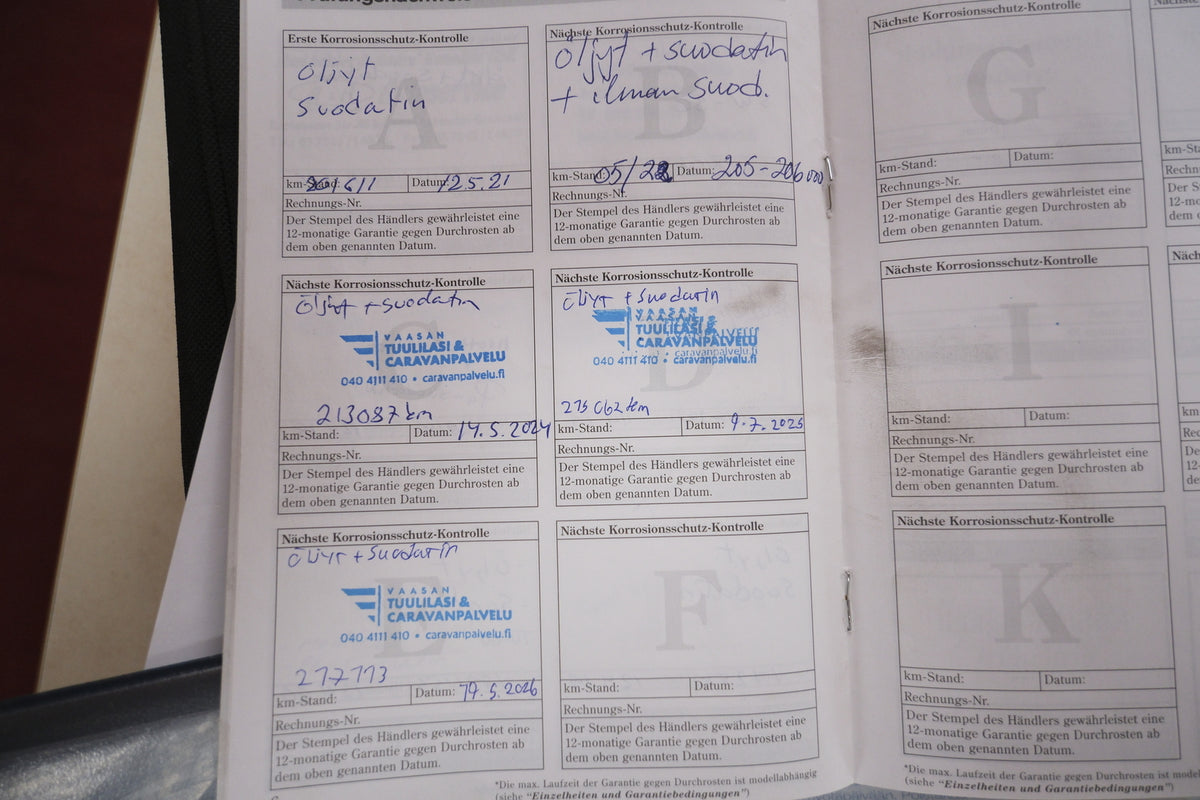 Erste Korrosionsschutz-Kontrolle
Öljyt
Suodatin
A
km-Stand:
Datum:
12.5.21
Rechnungs-Nr.
Der Stempel des Händlers gewährleistet eine
12-monatige Garantie gegen Durchrosten ab
dem oben genannten Datum.
Nächste Korrosionsschutz-Kontrolle
Öljyt + suodatin
+ ilman suod.
B
km-Stand: 05/22
Datum: 205-206000
Rechnungs-Nr.
Der Stempel des Händlers gewährleistet eine
12-monatige Garantie gegen Durchrosten ab
dem oben genannten Datum.
Nächste Korrosionsschutz-Kontrolle
Öljyt + suodatin
C
VAASAN
TUULILASI &
CARAVANPALVELU
040 4111 410 • caravanpalvelu.fi
213087 km
km-Stand:
Datum: 14.5.2024
Rechnungs-Nr.
Der Stempel des Händlers gewährleistet eine
12-monatige Garantie gegen Durchrosten ab
dem oben genannten Datum.
Nächste Korrosionsschutz-Kontrolle
Öljyt + Suodatin
D
VAASAN
TUULILASI &
CARAVANPALVELU
040 4111 410 • caravanpalvelu.fi
km-Stand:
Datum: 9.7.2025
Rechnungs-Nr.
Der Stempel des Händlers gewährleistet eine
12-monatige Garantie gegen Durchrosten ab
dem oben genannten Datum.
Nächste Korrosionsschutz-Kontrolle
Öljyt + Suodatin
E
VAASAN
TUULILASI &
CARAVANPALVELU
040 4111 410 • caravanpalvelu.fi
km-Stand:
Datum: 19.5.2026
Rechnungs-Nr.
Der Stempel des Händlers gewährleistet eine
12-monatige Garantie gegen Durchrosten ab
dem oben genannten Datum.
Nächste Korrosionsschutz-Kontrolle
F
km-Stand:
Datum:
Rechnungs-Nr.
Der Stempel des Händlers gewährleistet eine
12-monatige Garantie gegen Durchrosten ab
dem oben genannten Datum.
*Die max. Laufzeit der Garantie gegen Durchrosten ist modellabhängig
(siehe "Einzelheiten und Garantiebedingungen")
Nächste Korrosionsschutz-Kontrolle
G
km-Stand:
Datum:
Rechnungs-Nr.
Der Stempel des Händlers gewährleistet eine
12-monatige Garantie gegen Durchrosten ab
dem oben genannten Datum.
Nächste Korrosionsschutz-Kontrolle
I
km-Stand:
Datum:
Rechnungs-Nr.
Der Stempel des Händlers gewährleistet eine
12-monatige Garantie gegen Durchrosten ab
dem oben genannten Datum.
Nächste Korrosionsschutz-Kontrolle
K
km-Stand:
Datum:
Rechnungs-Nr.
Der Stempel des Händlers gewährleistet eine
12-monatige Garantie gegen Durchrosten ab
dem oben genannten Datum.
*Die max. Laufzeit der Garantie gegen Durchrosten ist
(siehe "Einzelheiten und Garantiebedingungen")